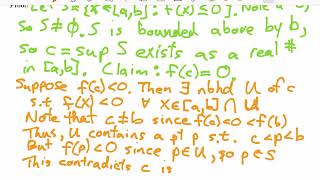 Proof: Let S = {x ∈ [a,b] : f(x) ≤ 0}. Note a ∈
So S ≠ ∅. S is bounded above by b,
so c = sup S exists as a real #
in [a,b]. Claim: f(c) = 0.
Suppose f(c) < 0. Then ∃ nbhd U of c
s.t f(x) < 0 ∀ x ∈ [a,b] ∩ U
Note that c ≠ b since f(c) < 0 < f(b)
Thus, U contains a pt p s.t. c < p < b
But f(p) < 0 since p ∈ U, so p ∈ S
This contradicts c is